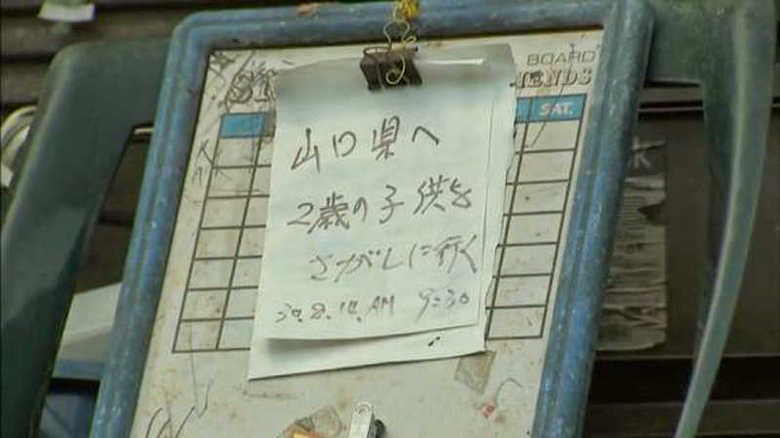 BOARD
SAT.
山口県へ
2歳の子供を
さがしに行く
30.8.14.AM 9:30